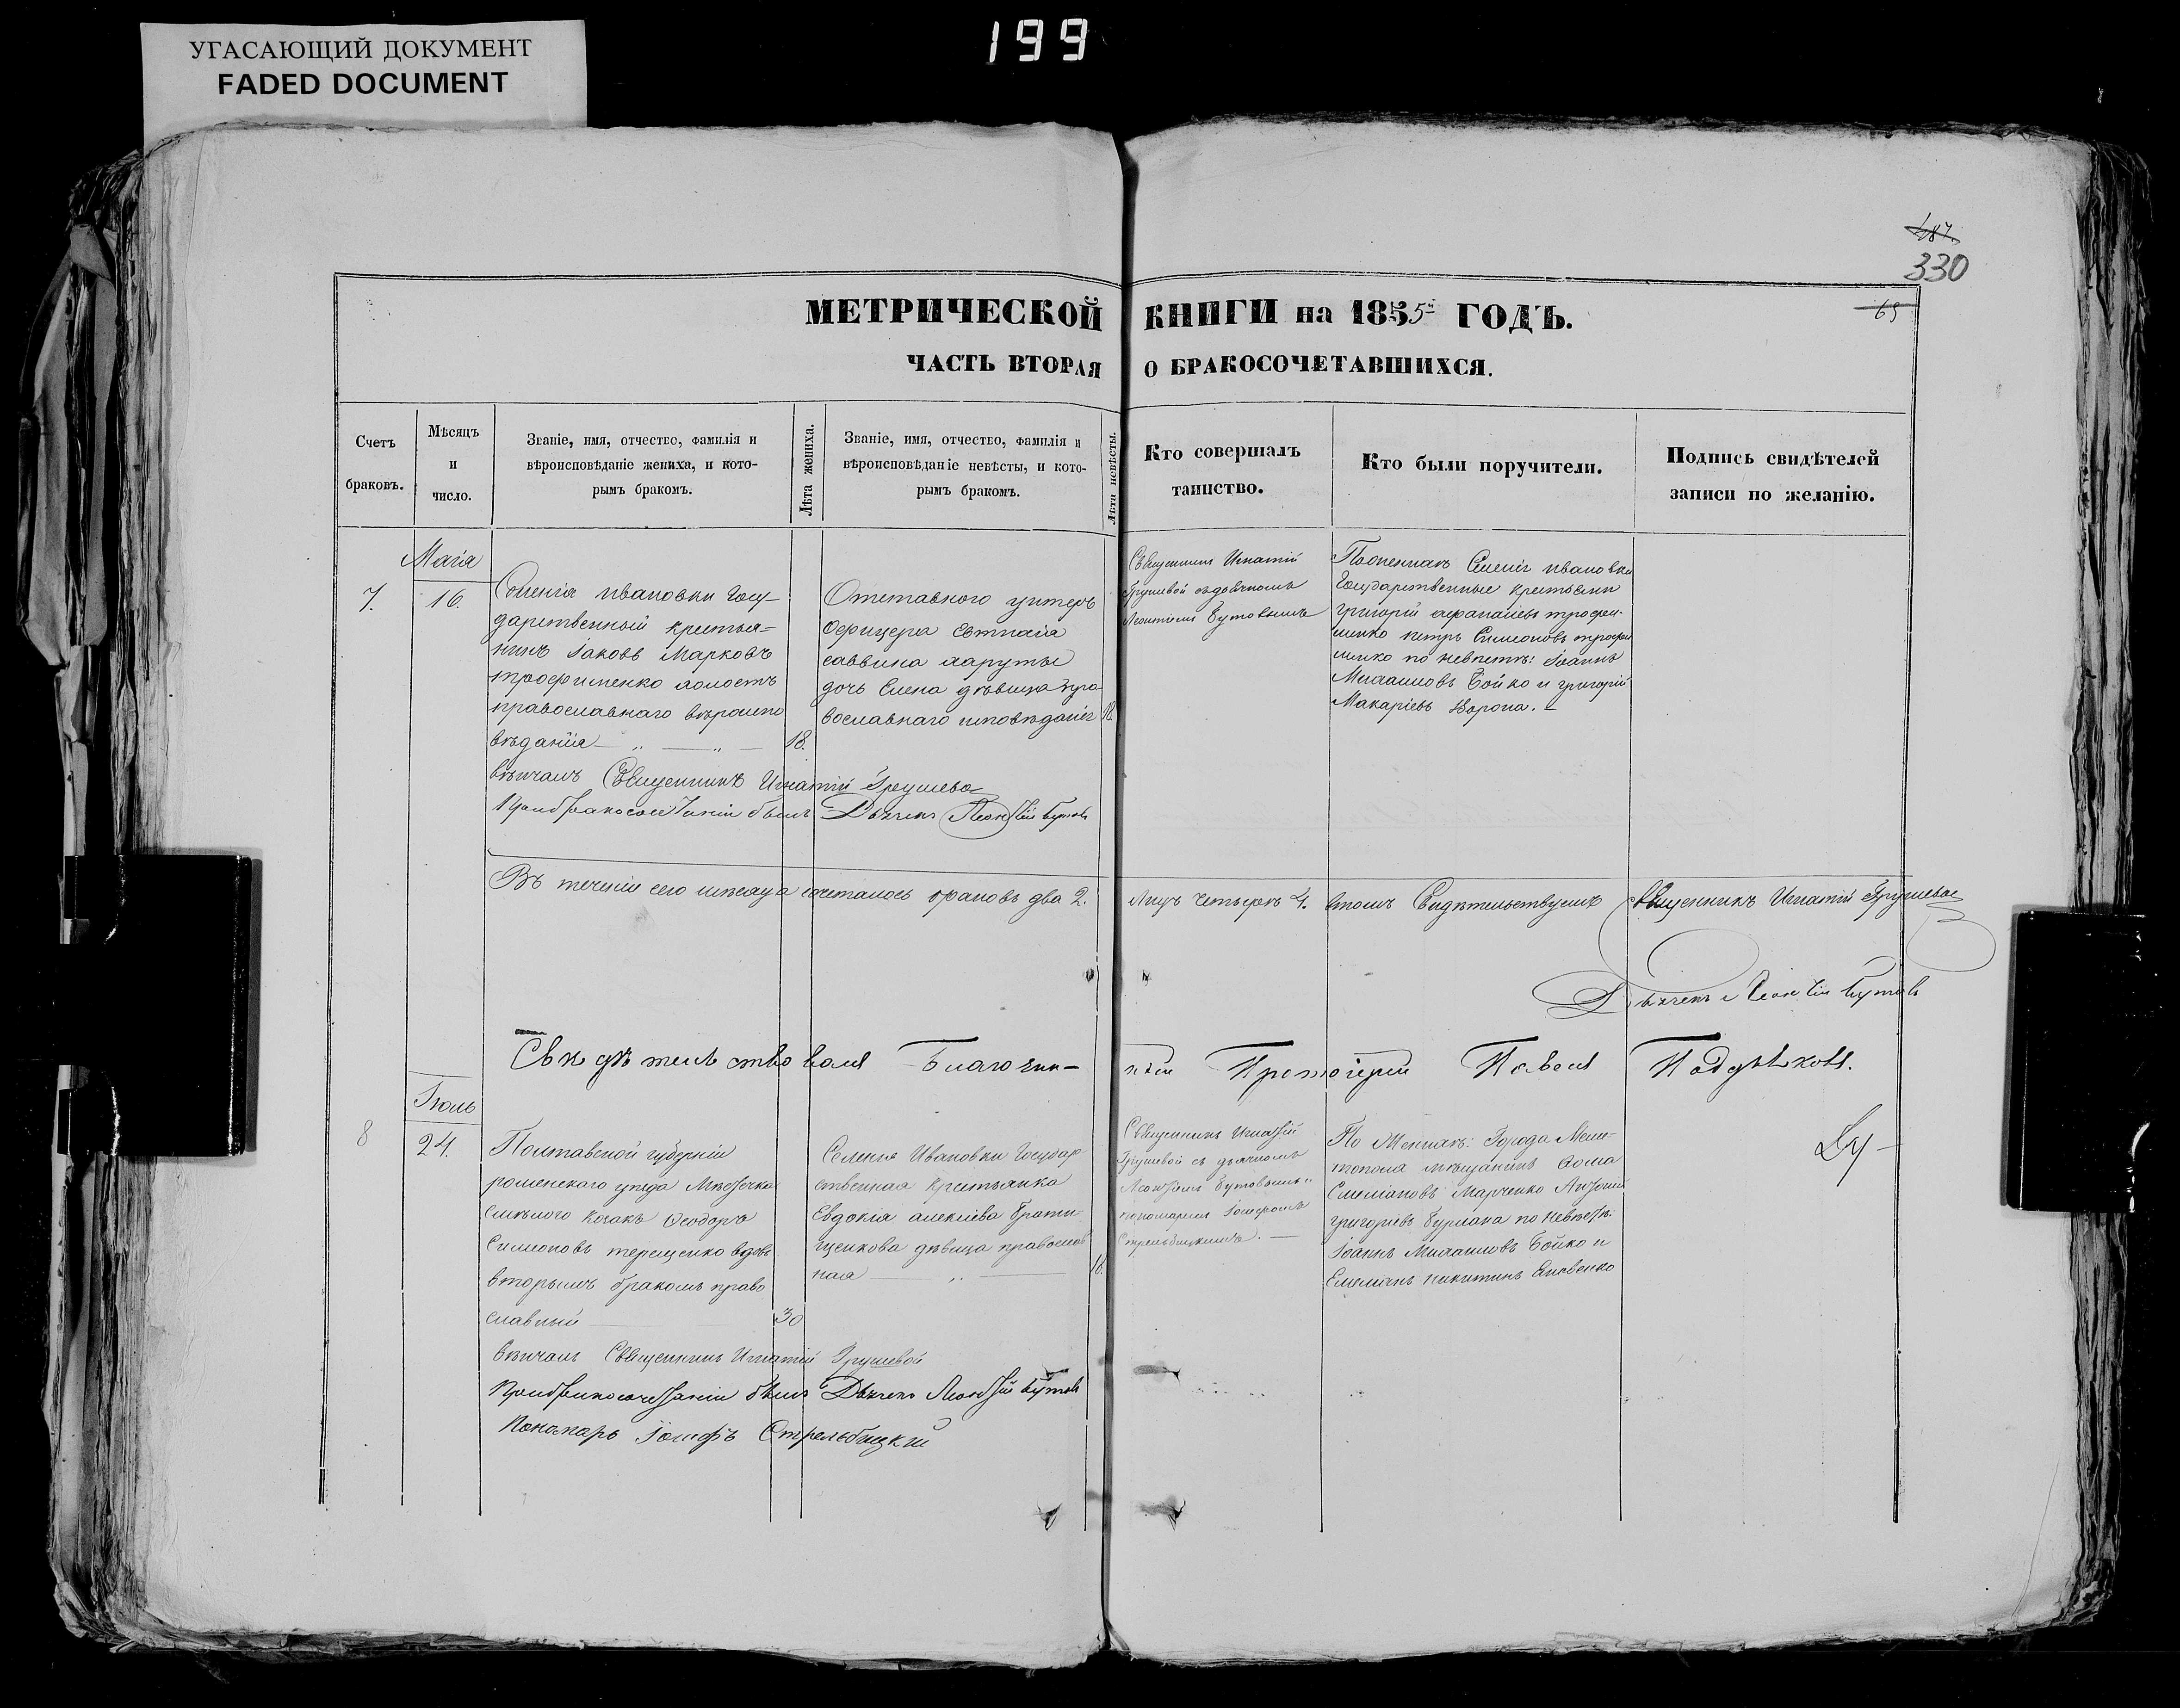 199
УГАСАЮЩИЙ ДОКУМЕНТ
FADED DOCUMENT
187.
330
65
МЕТРИЧЕСКОЙ КНИГИ на 1855й ГОДЪ.
ЧАСТЬ ВТОРАЯ О БРАКОСОЧЕТАВШИХСЯ.
Счетъ
браковъ.
Мѣсяцъ
и
число.
Званіе, имя, отчество, фамилія и
вѣроисповѣданіе жениха, и кото-
рымъ бракомъ.
Лѣта жениха.
Званіе, имя, отчество, фамилія и
вѣроисповѣданіе невѣсты, и кото-
рымъ бракомъ.
Лѣта невѣсты.
Кто совершалъ
таинство.
Кто были поручители.
Подпись свидѣтелей
записи по желанію.
Маія
7.
16.
Селенія ивановки Госу-
дарственный крестья-
нинъ Іаковъ Марковъ
трофименко холостъ
православнаго вѣроиспо
вѣданія
18.
Отставного унтеръ
Офицера Евтихія
саввина
дочь Елена дѣвица пра
вославнаго исповѣданія
18
Священникъ Игнатій
Грушевой съ дьячкомъ
Леонтіемъ Бутовымъ
По женихѣ Селенія ивановки
Государственные крестьяни
григорій афанасіевъ трофи
менко петръ Симеоновъ трофи
менко по невѣстѣ: Іоаннъ
Михаиловъ Бойко и григорій
Макаріевъ Ворона.
вѣнчалъ Священникъ Игнатій Грушевой
При бракосочетаніи былъ Дьячекъ Леонтій Бутовъ
Въ теченіи сего мѣсяца сочеталось браковъ два 2. Лицъ четыре 4. втомъ Свидѣтельствуемъ Священникъ Игнатій Грушевой
Дьячекъ Леонтій Бутовъ
Свидѣтельствовалъ Благочин-ный Протоіерей Павелъ
Іюль
8
24.
Полтавской губерніи
роменскаго уѣзда Мѣстечка
Смѣлого Козакъ Ѳеодоръ
Симеоновъ терещенко вдовъ
вторымъ бракомъ право
славный
30
Селенія Ивановки Государ
ственная крестьянка
Евдокія алексіева
дѣвица православ
ная
18.
Священникъ Игнатій
Грушевой съ дьячкомъ
Леонтіемъ Бутовымъ и
пономаремъ Іосифомъ
Стрельбицкимъ.
По Женихѣ: Города Мели-
тополя мѣщанинъ Ѳома
Емеліановъ Марченко Антоній
григоріевъ Бурлака по невѣстѣ:
Іоаннъ Михаиловъ Бойко и
Емеліянъ никитинъ Яковенко
вѣнчалъ Священникъ Игнатій Грушевой
При бракосочетаніи былъ Дьячекъ Леонтій Бутовъ
Пономарь Іосифъ Стрельбицкій